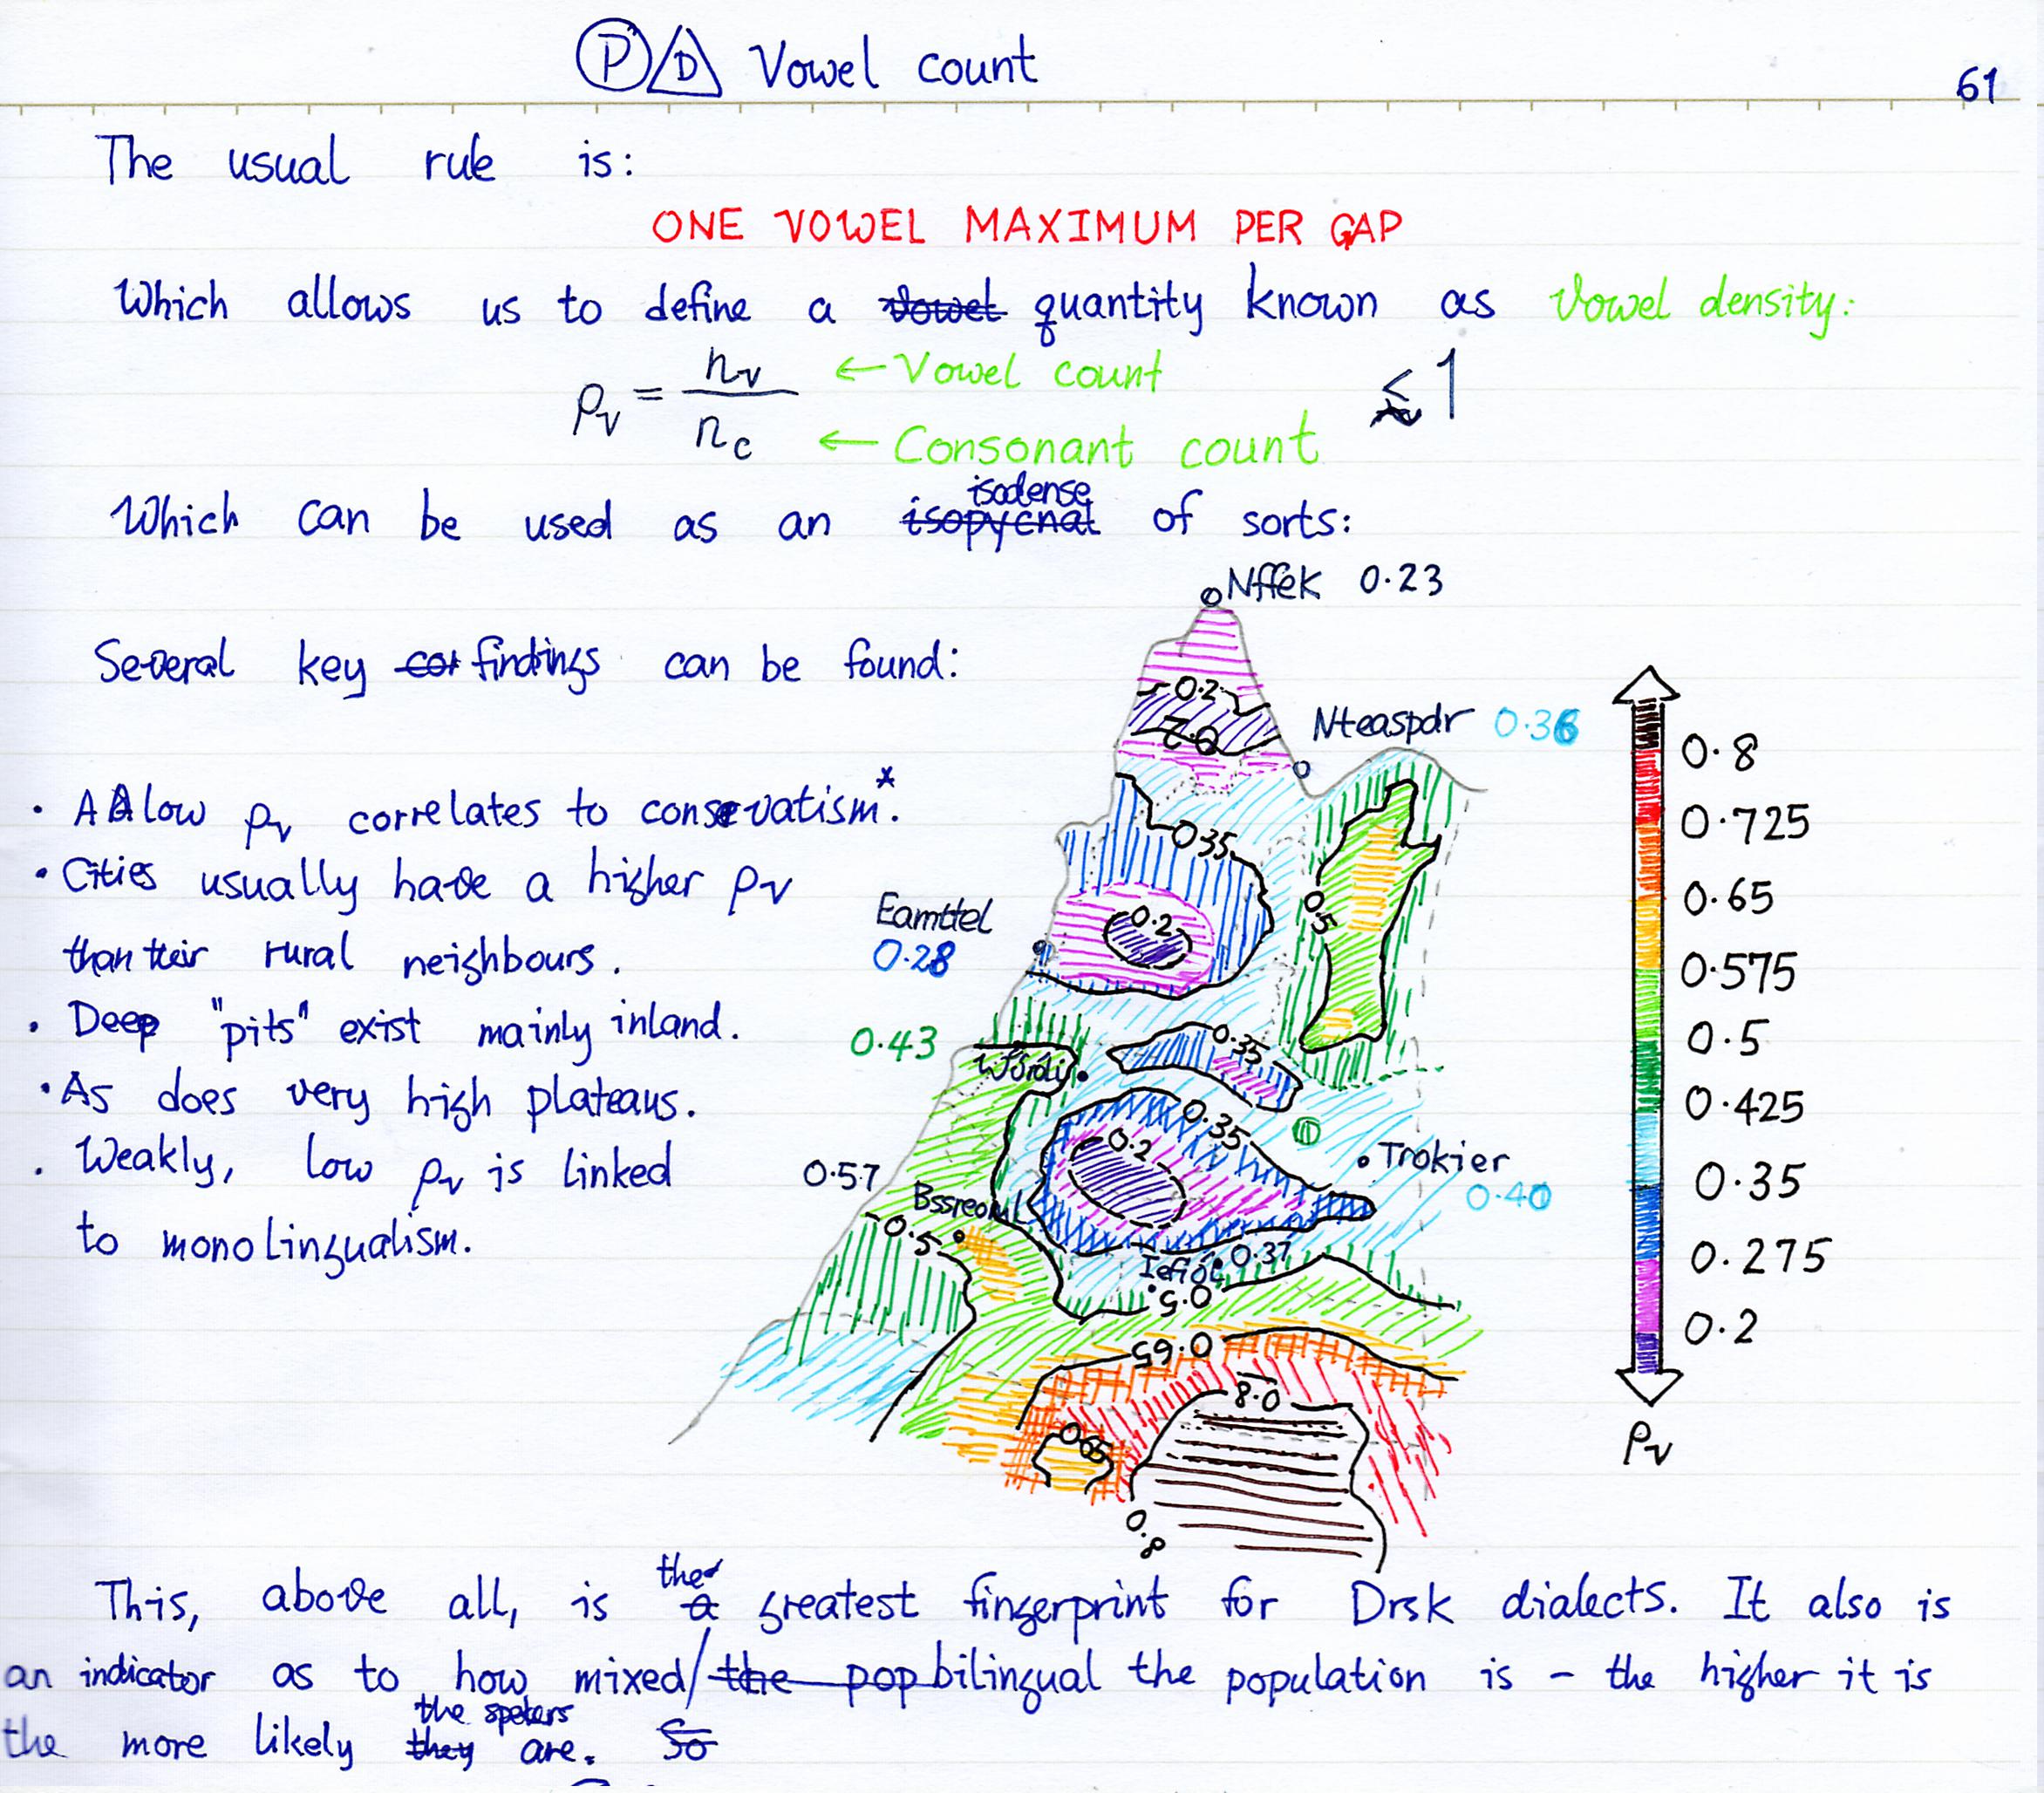 P D Vowel count
61
The usual rule is:
ONE VOWEL MAXIMUM PER GAP
Which allows us to define a vowel quantity known as Vowel density:
ρv = nv / nc ≤ 1
← Vowel count
← Consonant count
isodense
Which can be used as an isopycnal of sorts:
Nffek 0.23
Several key cor findings can be found:
0.2
Nteaspdr 0.36
0.2
0.8
• A A low ρv correlates to conservatism*.
0.725
0.35
• Cities usually have a higher ρv
0.65
Eamttel
0.2
0.5
than their rural neighbours.
0.28
0.575
• Deep "pits" exist mainly inland.
0.43
0.35
0.5
• As does very high plateaus.
0.35
0.425
• Weakly, low ρv is linked
0.2
Trokier
0.57
0.35
0.40
BssreomL
0.5
to monolingualism.
0.37
0.275
0.5
0.2
0.65
0.8
0.65
ρv
0.8
the
This, above all, is a greatest fingerprint for Drsk dialects. It also is
an indicator as to how mixed/the pop bilingual the population is – the higher it is
the spekers
the more likely they are. So